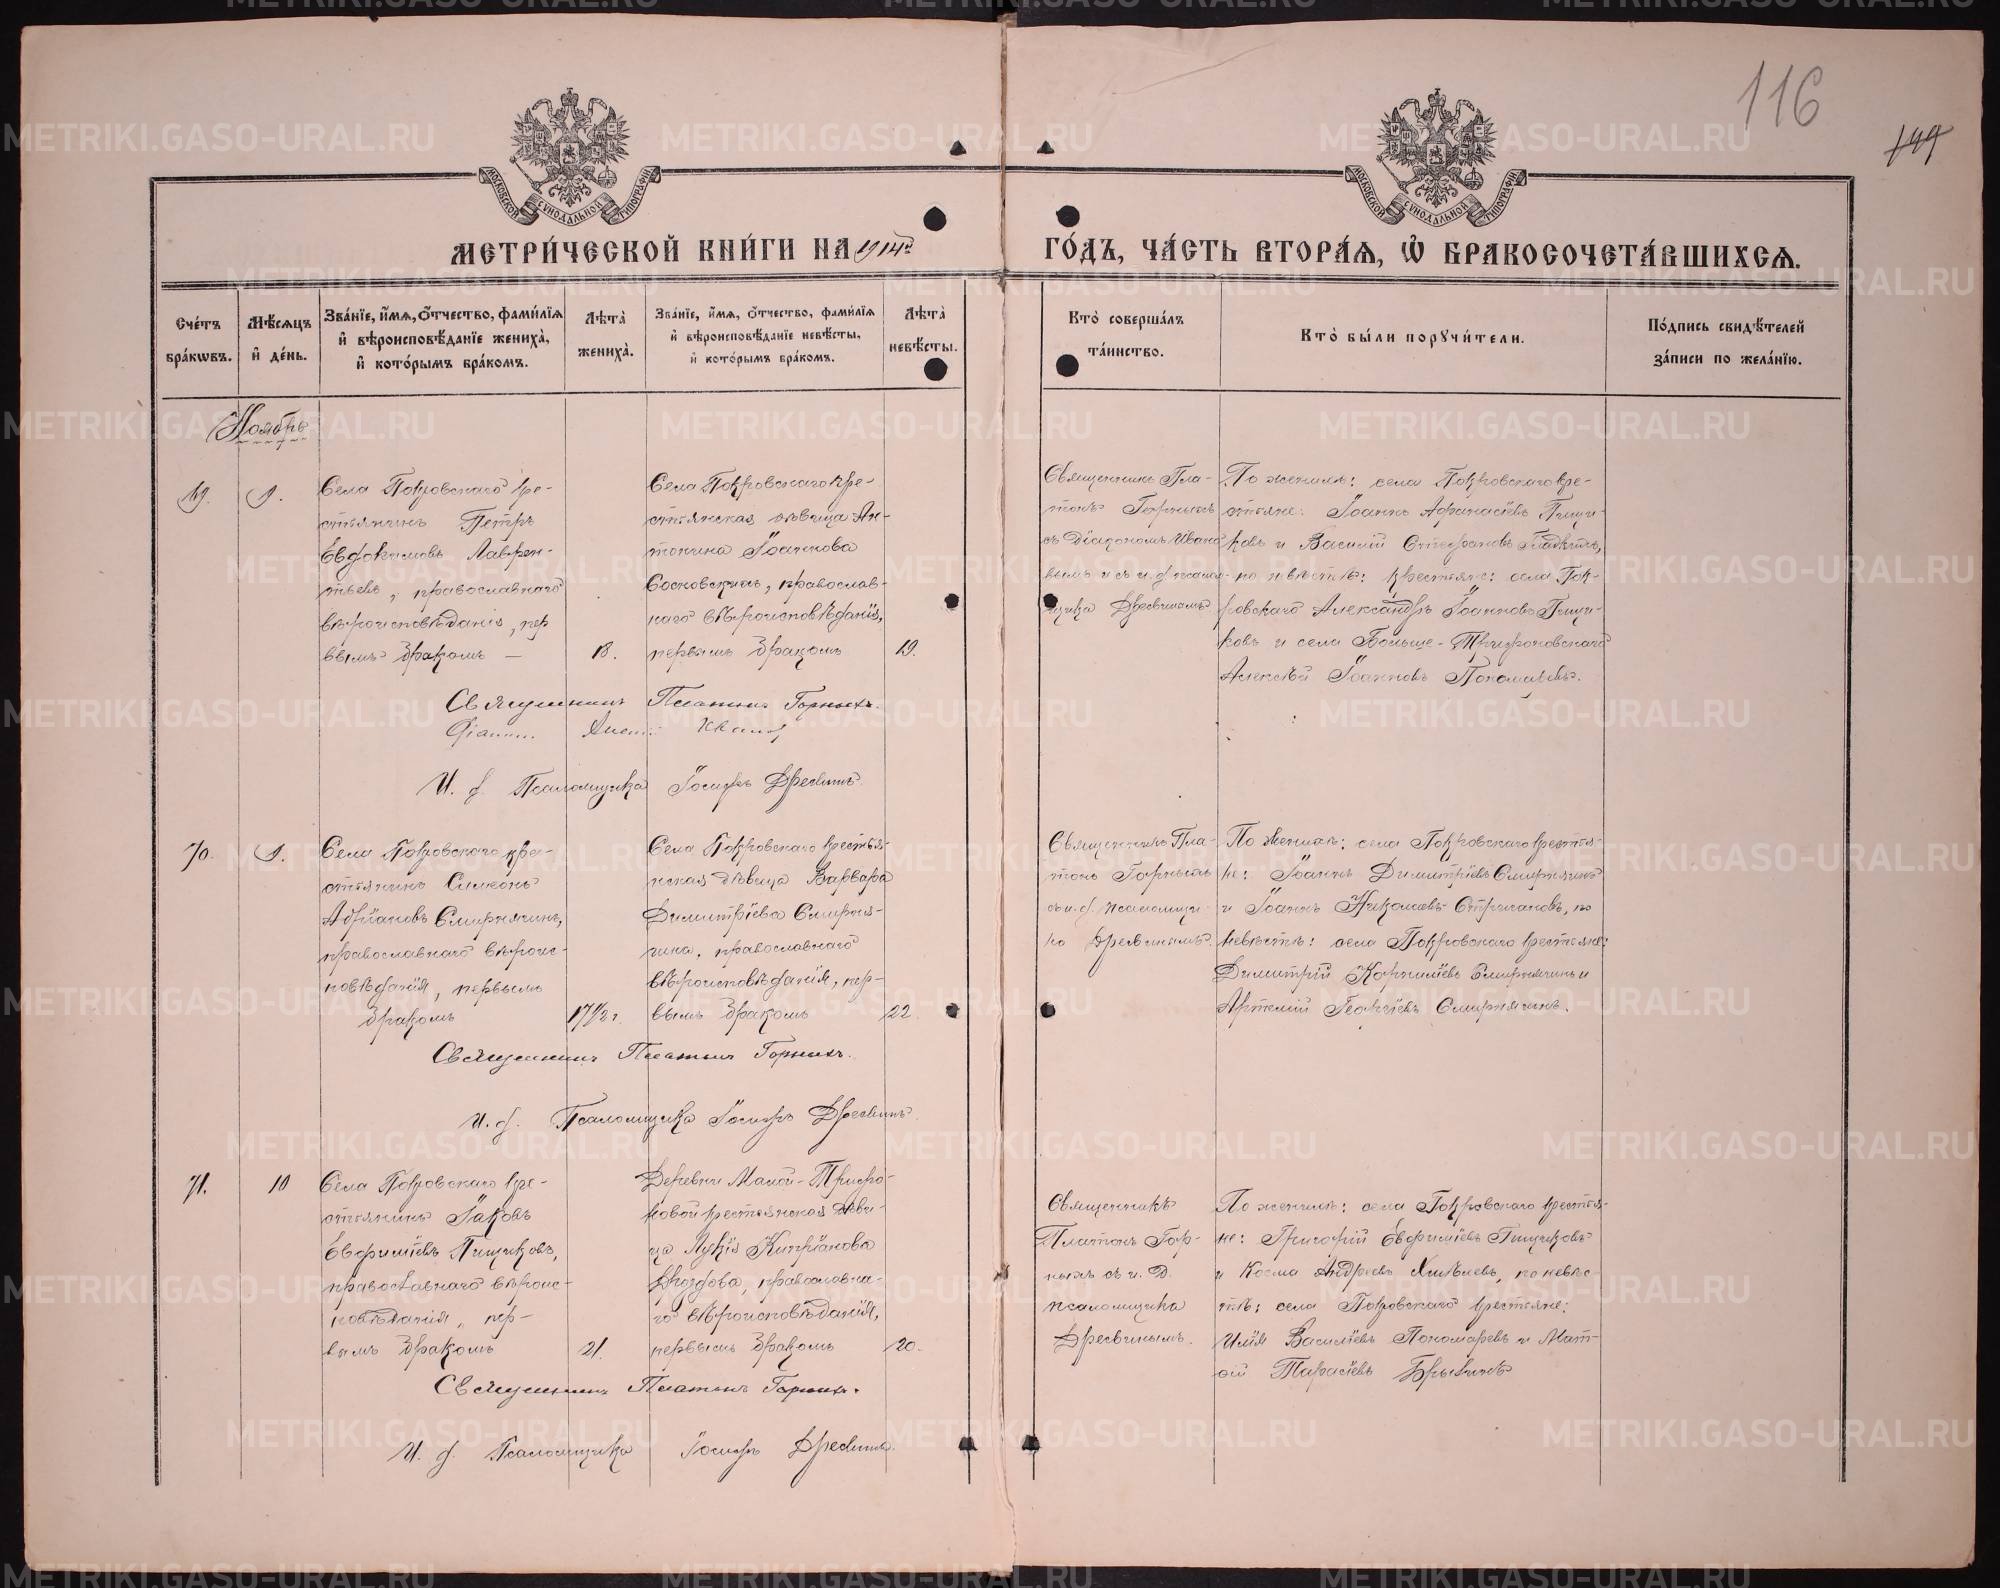 116
149
МОСКОВСКОЙ СѴНОДАЛЬНОЙ ТИПОГРАФІИ
МОСКОВСКОЙ СѴНОДАЛЬНОЙ ТИПОГРАФІИ
МЕТРИ́ЧЕСКОЙ КНИ́ГИ НА 1914й ГО́ДЪ, ЧА́СТЬ ВТОРА́Ѧ, Ѽ БРАКОСОЧЕТА́ВШИХСѦ.
Счéтъ бра́кѡвъ.
Мѣ́сѧцъ и҆ де́нь.
Зва́нїе, и҆́мѧ, ѻ҆́тчество, фами́лїѧ и҆ вѣроисповѣ́данїе жениха̀, и҆ кото́рымъ бра́комъ.
Лѣ́та̀ жениха̀.
Зва́нїе, и҆́мѧ, ѻ҆́тчество, фами́лїѧ и҆ вѣроисповѣ́данїе невѣ́сты, и҆ кото́рымъ бра́комъ.
Лѣ́та̀ невѣ́сты.
Кто̀ соверша́лъ та́инство.
Кто̀ бы́ли порꙋчи́тели.
По́дпись свидѣ́телей за́писи по жела́нїю.
Ноябрь
69.
9.
Села Покровскаго кре-
стьянинъ Петръ
Евдокимовъ Лаврен-
тьевъ, православнаго
вѣроисповѣданія, пер
вымъ бракомъ —
18.
Села Покровскаго кре-
стьянская дѣвица Ан-
тонина Іоаннова
Сосновскихъ, православ-
наго вѣроисповѣданія,
первымъ бракомъ
19.
Священникъ Пла-
тонъ Горныхъ
съ Діакономъ Ивано
вымъ и съ и. ф. псалом-
щика Дресвинымъ
По женихѣ: села Покровскаго кре-
стьяне: Іоаннъ Афанасіевъ Пищи-
ковъ и Василій Стефановъ
по невѣстѣ: крестьяне: села Пок-
ровскаго Александръ Іоанновъ Пищи-
ковъ и села Больше-Трифоновскаго
Алексѣй Іоанновъ
Священникъ Платонъ Горныхъ.
И. ф. Псаломщика Іосифъ Дресвинъ.
70.
9.
Села Покровскаго кре-
стьянинъ Симеонъ
Адріановъ Смирнягинъ,
православнаго вѣроис-
повѣданія, первымъ
бракомъ
17 1/2 г.
Села Покровскаго крестья-
нская дѣвица Варвара
Димитріева Смирня-
гина, православнаго
вѣроисповѣданія, пер-
вымъ бракомъ
22.
Священникъ Пла-
тонъ Горныхъ
съ и. ф. псаломщи-
ка Дресвинымъ.
По женихѣ: села Покровскаго крестья-
не: Іоаннъ Димитріевъ Смирнягинъ
и Іоаннъ Николаевъ Стригановъ, по
невѣстѣ: села Покровскаго крестьяне:
Димитрій Корниліевъ Смирнягинъ и
Артемій Георгіевъ Смирнягинъ.
Священникъ Платонъ Горныхъ.
И. ф. Псаломщика Іосифъ Дресвинъ
71.
10
Села Покровскаго кре-
стьянинъ Іаковъ
Евфиміевъ Пищиковъ,
православнаго вѣроис-
повѣданія, пер-
вымъ бракомъ
21.
Деревни Малой-Трифо-
новой крестьянская дѣви-
ца Лукія Кипріанова
Дроздова, православна-
го вѣроисповѣданія,
первымъ бракомъ
20.
Священникъ
Платонъ Гор-
ныхъ съ и. д.
псаломщика
Дресвинымъ.
По женихѣ: села Покровскаго крестья-
не: Григорій Евфиміевъ Пищиковъ
и Косма Андреевъ по невѣс-
тѣ: села Покровскаго крестьяне:
Илія Василіевъ Пономаревъ и Мат-
ѳій Тарасіевъ
Священникъ Платонъ Горныхъ.
И. ф. Псаломщика Іосифъ Дресвинъ.
METRIKI.GASO-URAL.RU